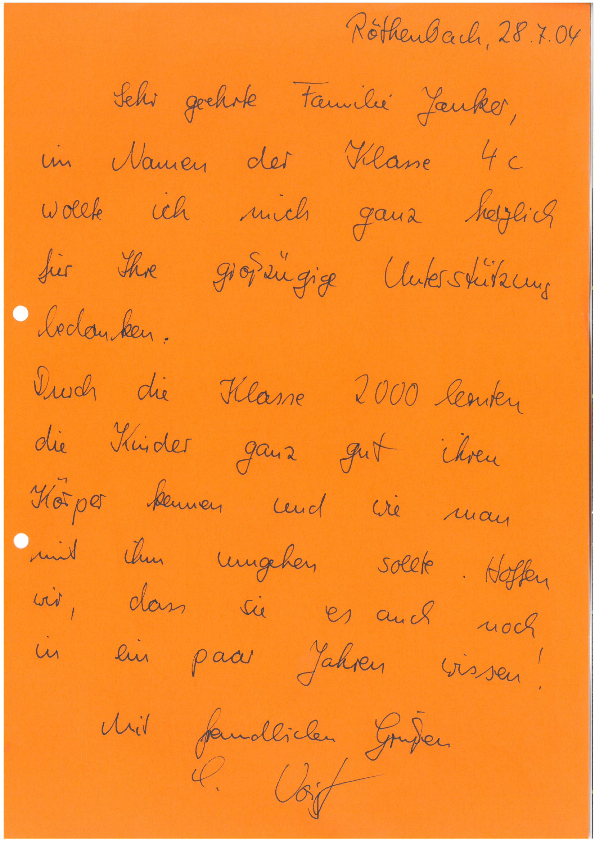 Röthenbach, 28.7.04
Sehr geehrte Familie Janker,
im Namen der Klasse 4c
wollte ich mich ganz herzlich
für Ihre großzügige Unterstützung
bedanken.
Durch die Klasse 2000 lernten
die Kinder ganz gut ihren
Körper kennen und wie man
mit ihm umgehen sollte. Hoffen
wir, dass sie es auch noch
in ein paar Jahren wissen!
Mit freundlichen Grüßen
Voigt